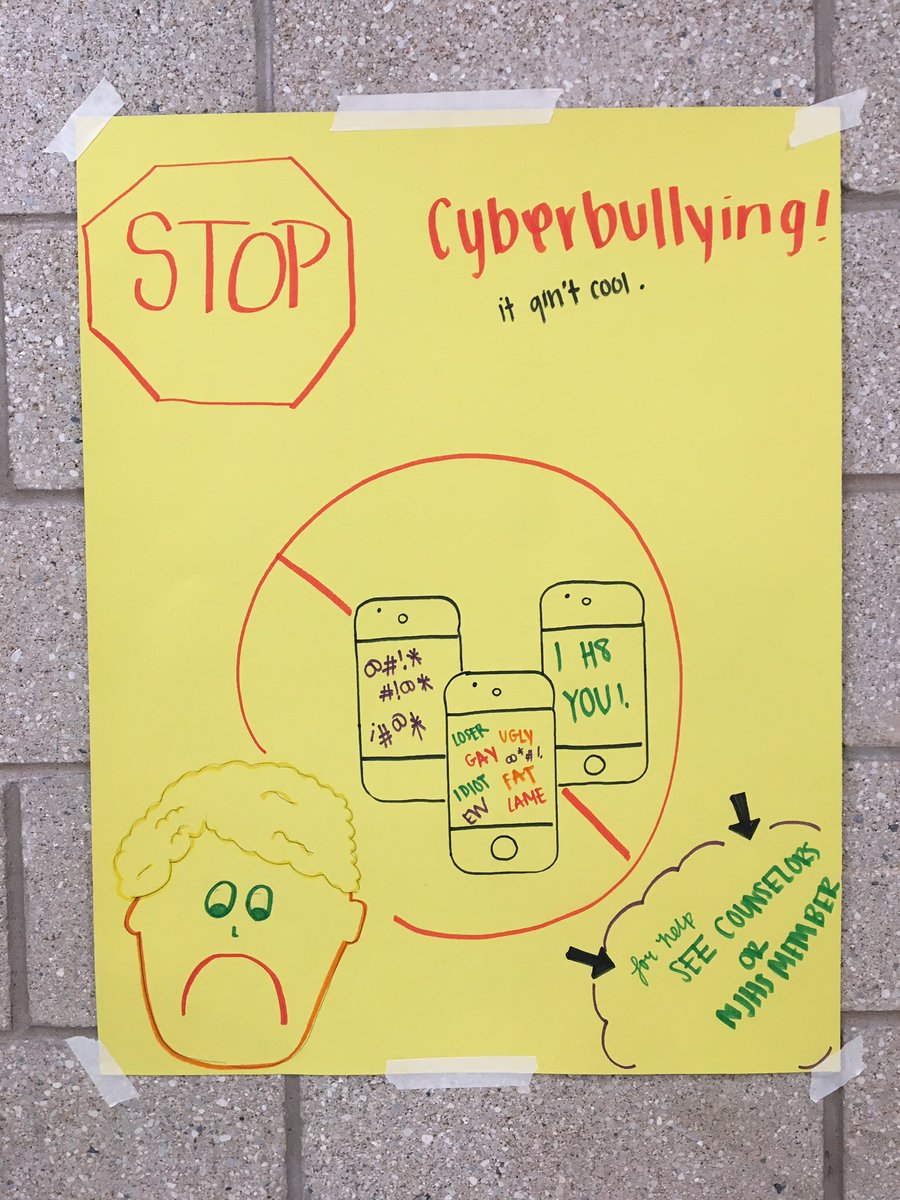 STOP
Cyberbullying!
it ain't cool.
@#!*
#!@*
!#@*
I H8
YOU!
LOSER UGLY
GAY @*#!
IDIOT FAT
EW LAME
for help
SEE COUNSELORS
OR
NJHS MEMBER